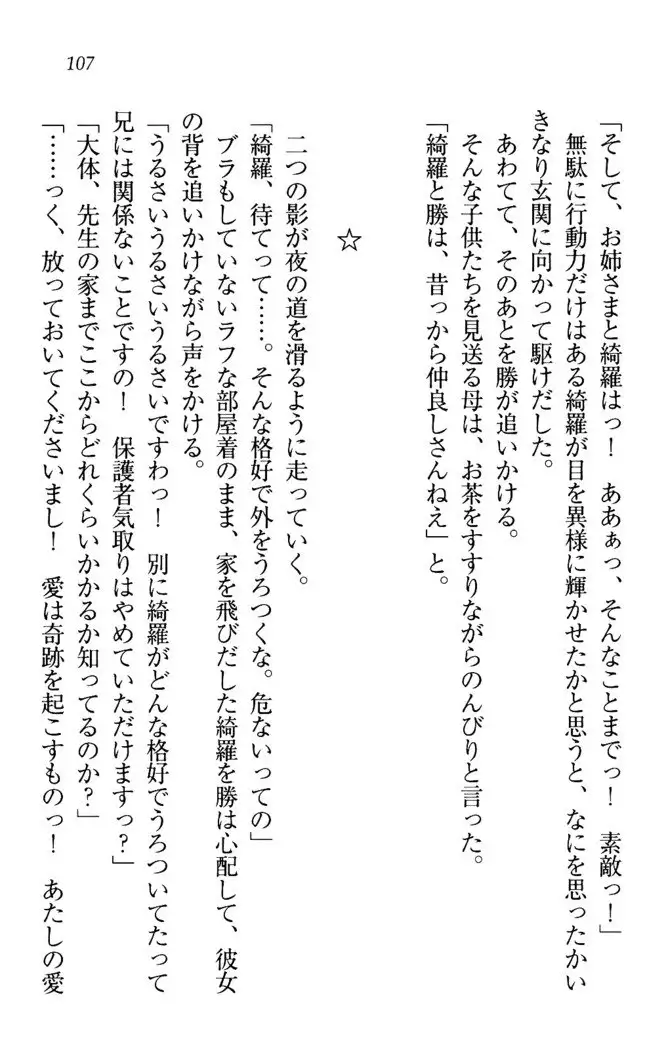 107
「そして、お姉さまと綺羅はっ!　ああぁっ、そんなことまでっ!　素敵っ!」
無駄に行動力だけはある綺羅が目を異様に輝かせたかと思うと、なにを思ったかい
きなり玄関に向かって駆けだした。
あわてて、そのあとを勝が追いかける。
そんな子供たちを見送る母は、お茶をすすりながらのんびりと言った。
「綺羅と勝は、昔っから仲良しさんねえ」と。
☆
二つの影が夜の道を滑るように走っていく。
「綺羅、待てって……。そんな格好で外をうろつくな。危ないっての」
ブラもしていないラフな部屋着のまま、家を飛びだした綺羅を勝は心配して、彼女
の背を追いかけながら声をかける。
「うるさいうるさいうるさいですわっ!　別に綺羅がどんな格好でうろついてたって
兄には関係ないことですの!　保護者気取りはやめていただけますっ?」
「大体、先生の家までここからどれくらいかかるか知ってるのか?」
「……っく、放っておいてくださいまし!　愛は奇跡を起こすものっ!　あたしの愛